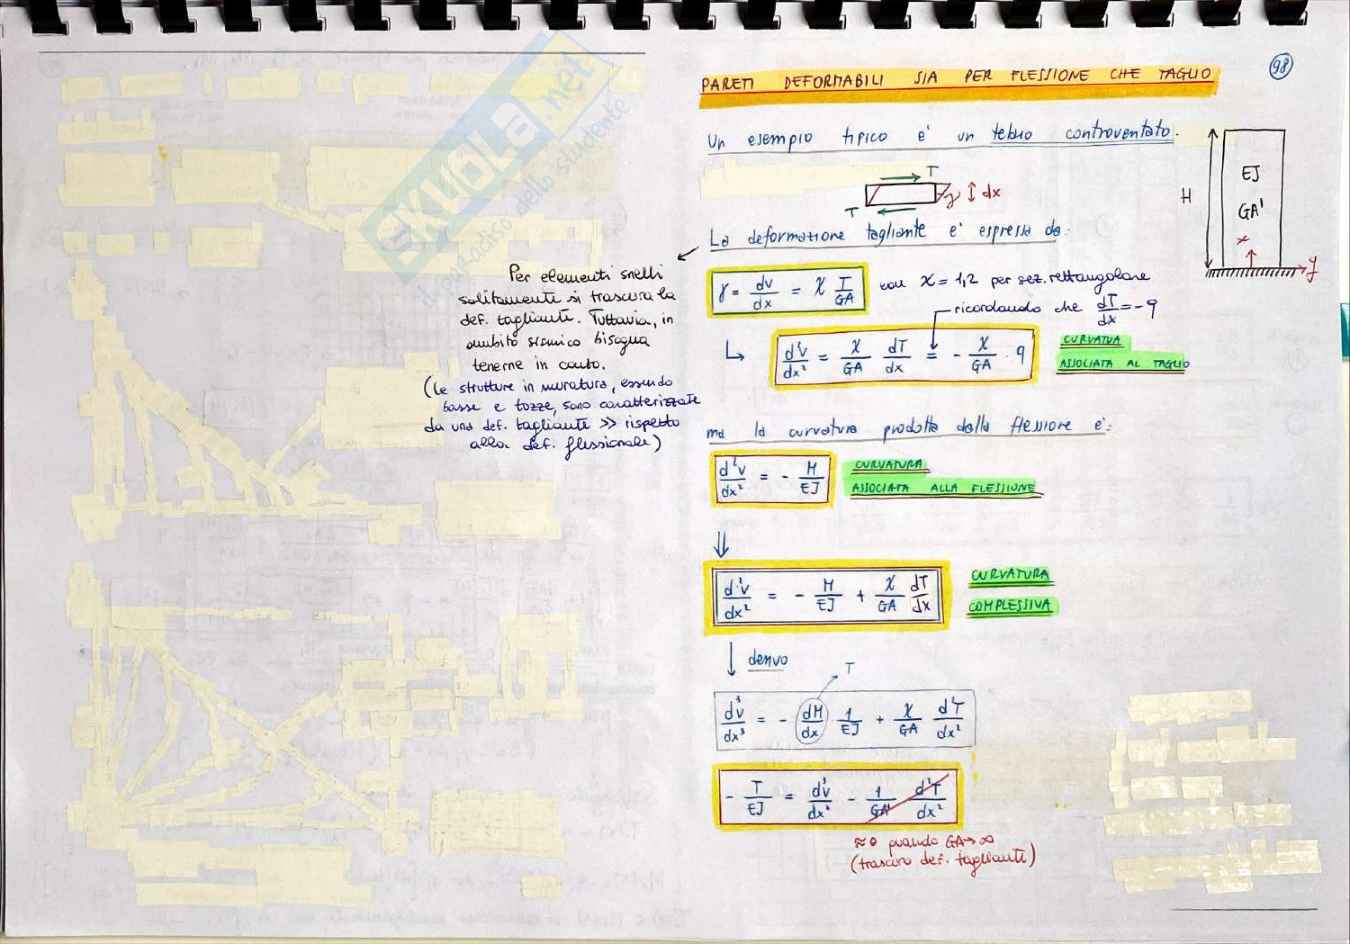 98
PARETI DEFORMABILI SIA PER FLESSIONE CHE TAGLIO
Un esempio tipico e' un telaio controventato.
H
EJ
GA'
x
y
T
T
γ
dx
La deformazione tagliante e' espressa da:
Per elementi snelli
solitamente si trascura la
def. tagliante. Tuttavia, in
ambito sismico bisogna
tenerne in conto.
(le strutture in muratura, essendo
basse e tozze, sono caratterizzate
da una def. tagliante >> rispetto
alla def. flessionale)
γ = dv/dx = χ T/GA con χ = 1,2 per sez. rettangolare
ricordando che dT/dx = -q
↳ d²v/dx² = χ/GA dT/dx = - χ/GA · q
CURVATURA
ASSOCIATA AL TAGLIO
ma la curvatura prodotta dalla flessione e':
d²v/dx² = - M/EJ
CURVATURA
ASSOCIATA ALLA FLESSIONE
⇓
d²v/dx² = - M/EJ + χ/GA dT/dx
CURVATURA
COMPLESSIVA
↓ derivo
T
d³v/dx³ = - dM/dx 1/EJ + χ/GA d²T/dx²
- T/EJ = d³v/dx³ - 1/GA' d²T/dx²
≈ 0 quando GA → ∞
(trascuro def. tagliante)
SKUOLA.net
il paradiso dello studente